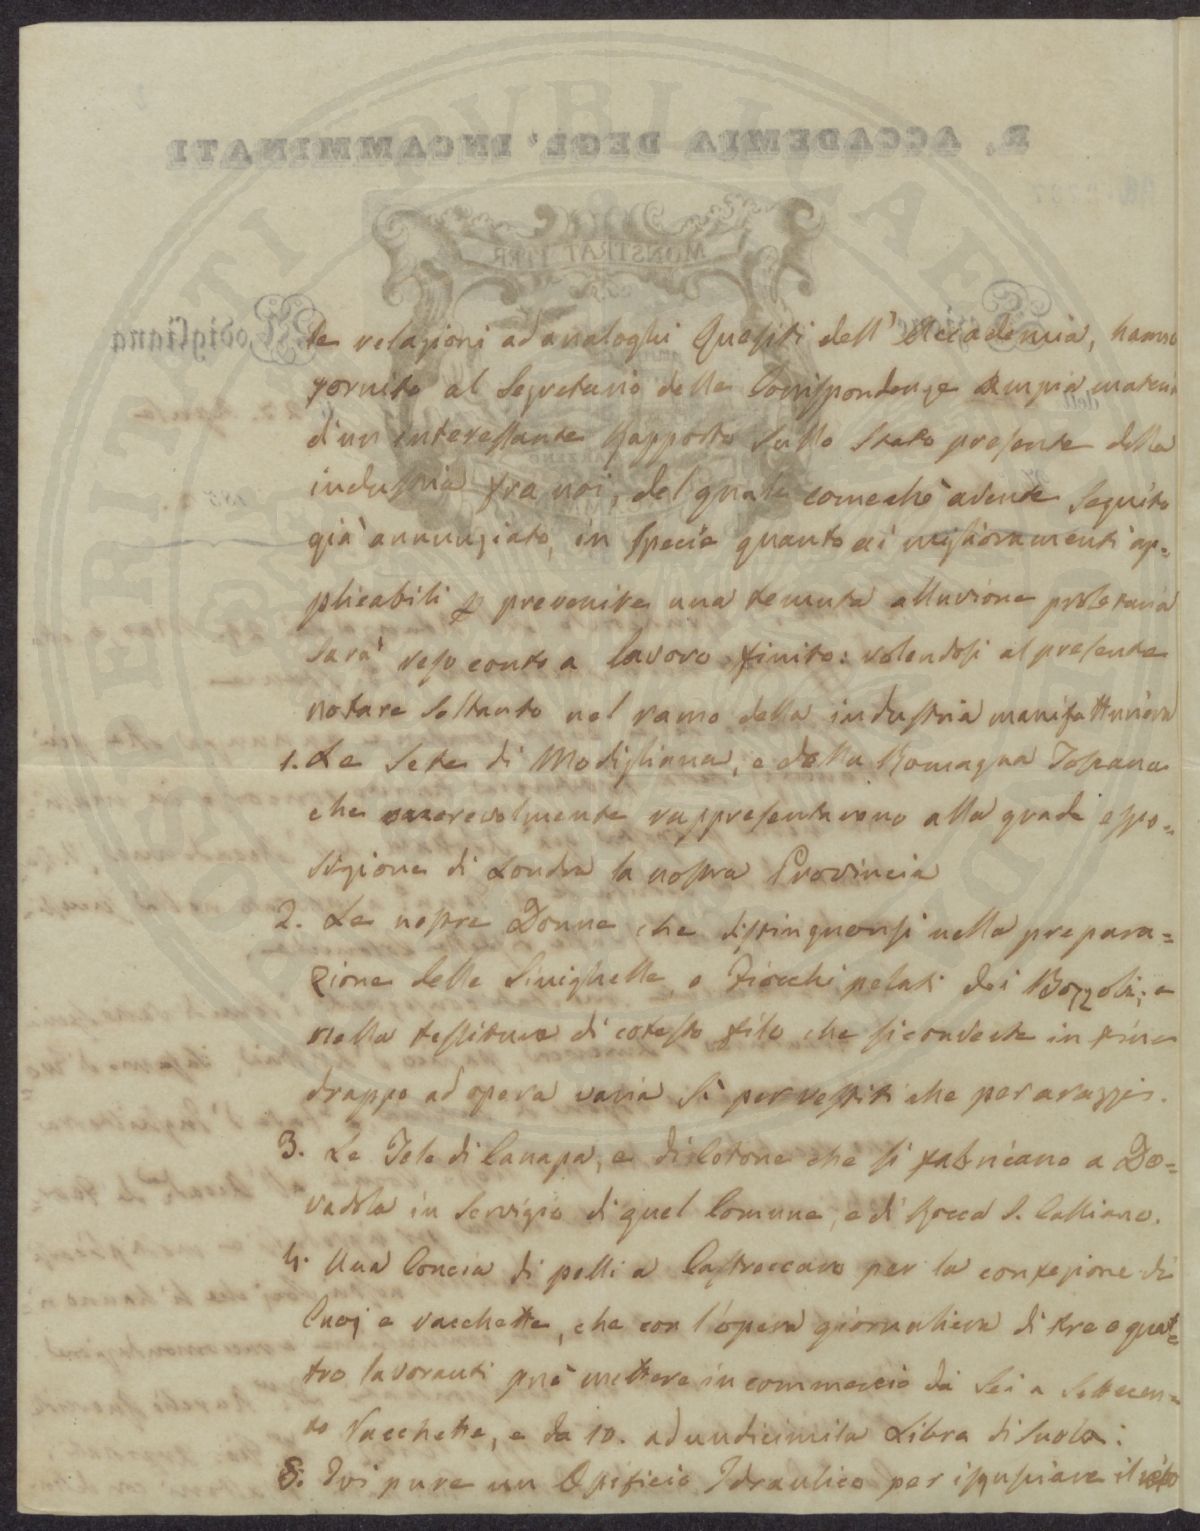 R. ACCADEMIA DEGL' INCAMMINATI
MONSTRAT ITER
Modigliana
le relazioni ad analoghi Quesiti dell' Accademia, hanno
fornito al Segretario delle Corrispondenze ampia materia
d'un interessante Rapporto sullo stato presente della
industria fra noi, del quale comechè avente seguito
già annunziato, in specie quanto ai miglioramenti ap=
plicabili p prevenire una temuta alluvione proletaria
sarà reso conto a lavoro finito: volendosi al presente
notare soltanto nel ramo della industria manifatturiera
1. Le Sete di Modigliana, e della Romagna Toscana
che onorevolmente rappresentavono alla grande espo=
sizione di Londra la nostra Provincia
2. Le nostre Donne che distinguonsi nella prepara=
zione delle Sinighelle o fiocchi pelati dei Bozzoli; e
nella tessitura di cotesto filo che si converte in fine
drappo ad opera varia sì per vestiti che per arazzi.
3. Le Tele di Canapa, e di Cotone che si fabricano a Do=
vadola in servigio di quel Comune, e di Rocca S. Cassiano.
4. Una Concia di pelli a Castrocaro per la confezione di
Cuoj e vacchette, che con l'opera giornaliera di tre o quat=
tro lavoranti può mettere in commercio da sei a settecen=
to Vacchette, e da 10. ad undicimila Libre di suolo:
5. Ivi pure un Opificio Idraulico per ispusiare il